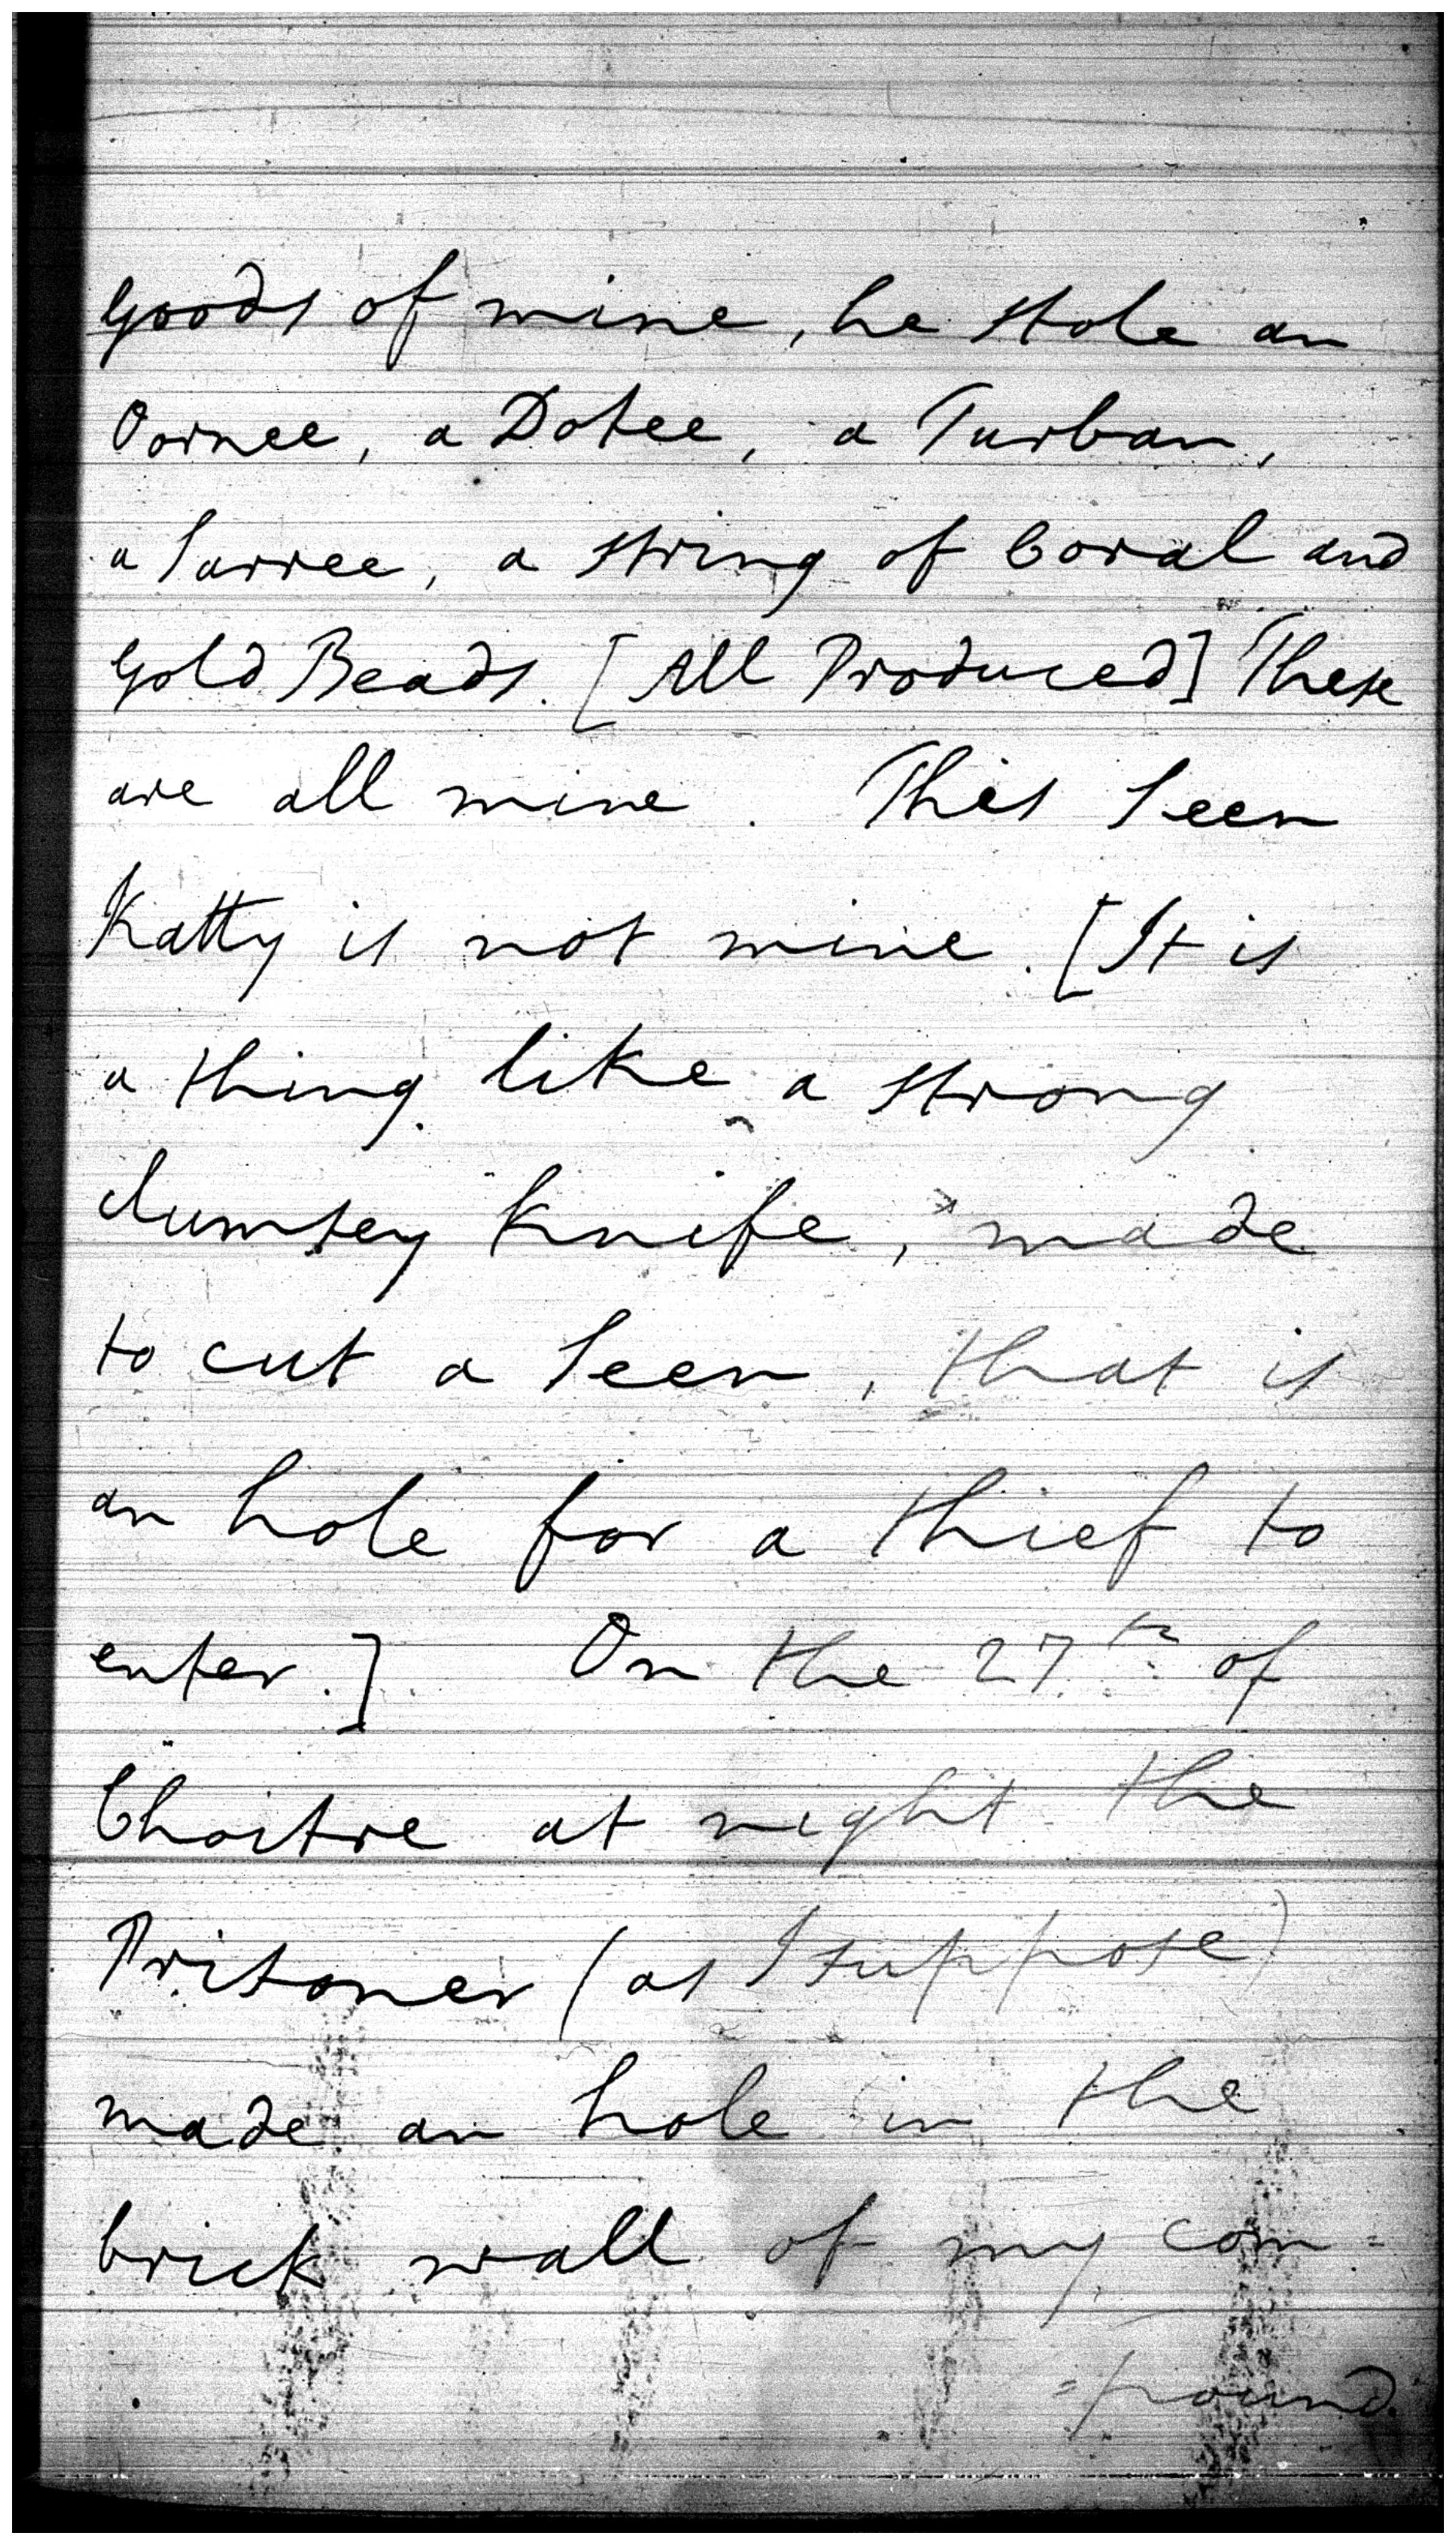 Goods of mine, he stole an
Oornee, a Dotee, a Turban,
a Sarree, a string of Coral and
Gold Beads. [All Produced] These
are all mine. This Seen
Katty is not mine. [It is
a thing like a strong
clumsey knife, made
to cut a Seen, that is
an hole for a thief to
enter.] On the 27th of
Choitre at night the
Prisoner (as I suppose)
made an hole in the
brick wall of my com=
=pound.